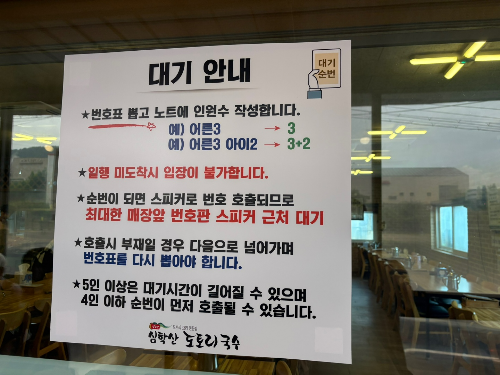 대기 안내
대기
순번
★번호표 뽑고 노트에 인원수 작성합니다.
예) 어른3 → 3
예) 어른3 아이2 → 3+2
★일행 미도착시 입장이 불가합니다.
★순번이 되면 스피커로 번호 호출되므로
최대한 매장앞 번호판 스피커 근처 대기
★호출시 부재일 경우 다음으로 넘어가며
번호표를 다시 뽑아야 합니다.
★5인 이상은 대기시간이 길어질 수 있으며
4인 이하 순번이 먼저 호출될 수 있습니다.
심학산 도토리국수